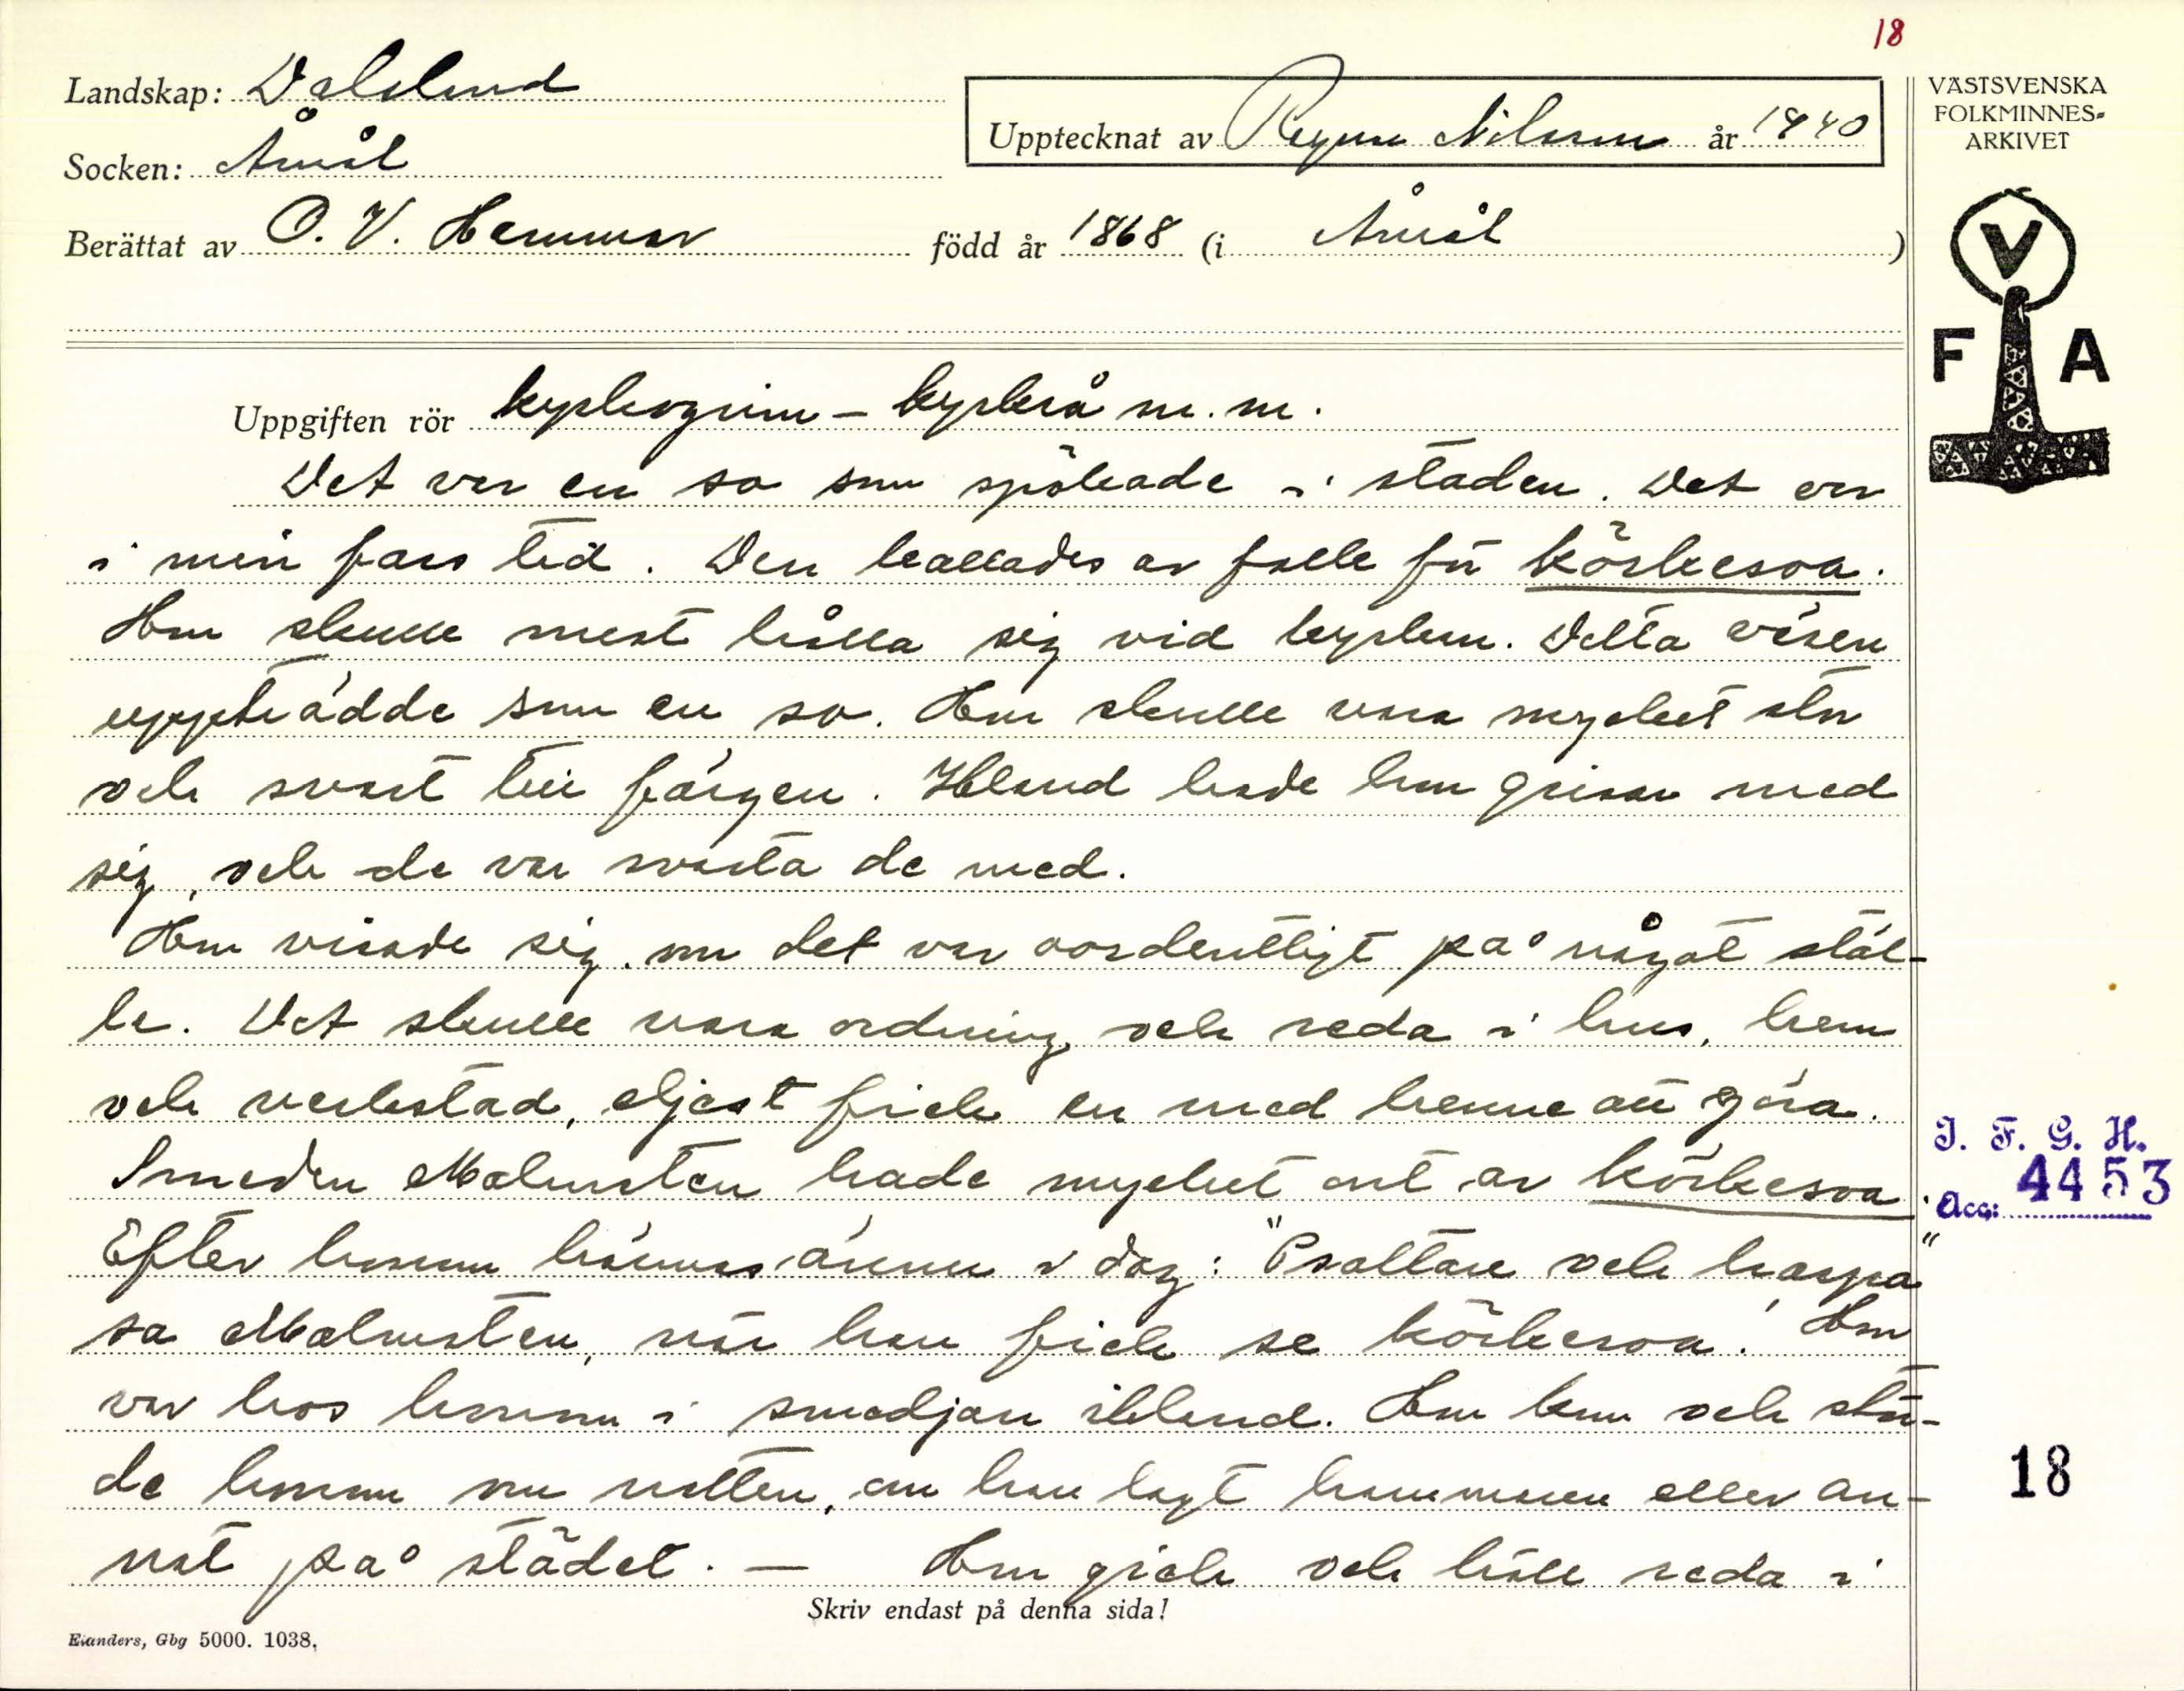 18
Landskap: Dalsland
Upptecknat av Ragnar Nilsson år 1940
VÄSTSVENSKA
FOLKMINNES-
ARKIVET
Socken: Åmål
Berättat av O. V. Hammar född år 1868 (i Åmål)
V
F A
Uppgiften rör kyrkogrim – kyrkrå m. m.
Det var en so som spökade i staden. Det var
i min fars tid. Den kallades av folk för körkesoa.
Hon skulle mest hålla sig vid kyrkan. Detta väsen
uppträdde som en so. Hon skulle vara mycket stor
och svart till färgen. Ibland hade hon grisar med
sig, och de var svarta de med.
Hon visade sig om det var oordentligt på något stäl-
le. Det skulle vara ordning och reda i hus, hem
och verkstad, eljest fick en med henne att göra.
Smeden Malmsten hade mycket ont av körkesoa.
Efter honom härmas ännu i dag: "Psaltare och harpa"
sa Malmsten, när han fick se körkesoa! Hon
var hos honom i smedjan ibland. Hon kom och stör-
de honom om natten, om han lagt hammaren eller an-
nat på städet. — Hon gick och höll reda i
Skriv endast på denna sida!
I. F. G. H.
Acc: 4453
18
Elanders, Gbg 5000. 1038.